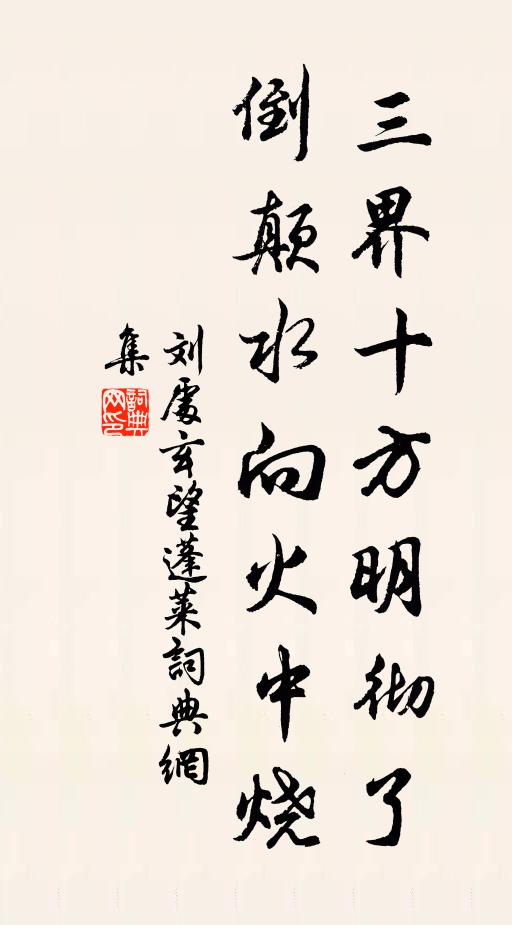 三界十方明彻了
倒颠水向火中烧
刘處玄望蓬莱詞典網
集
詞典
网印